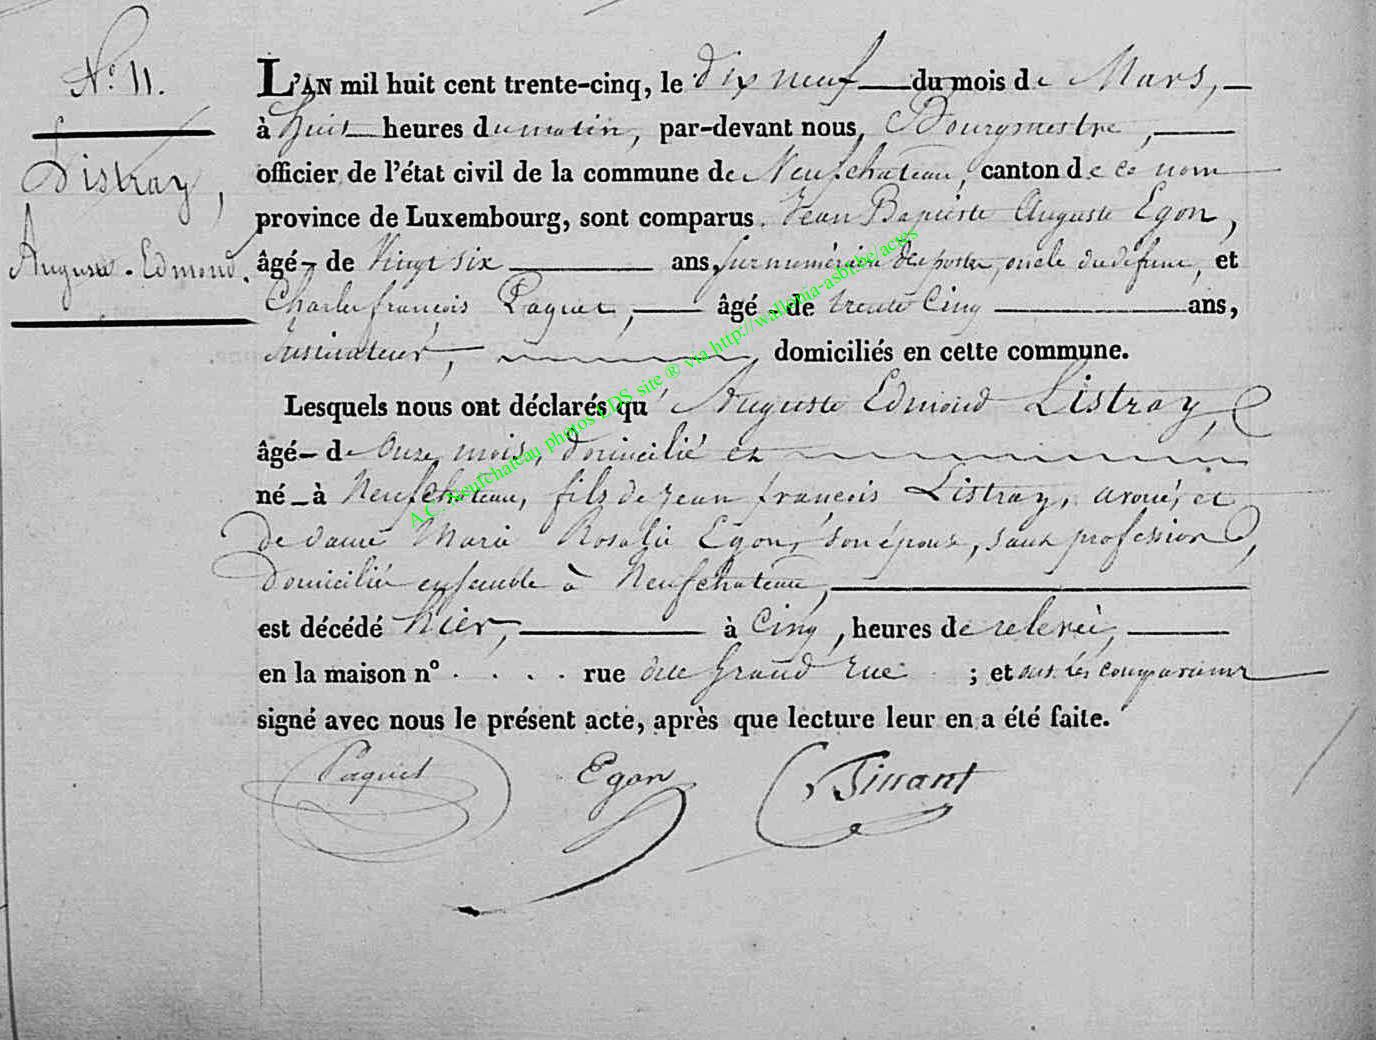 N.° 11.
Listray,
Auguste-Edmond.
L'AN mil huit cent trente-cinq, le dix neuf du mois de Mars,
à huit heures du matin, par-devant nous, Bourgmestre,
officier de l'état civil de la commune de Neufchateau, canton de ce nom
province de Luxembourg, sont comparus Jean Baptiste Auguste Egon,
âgé de Vingt six ans, surnuméraire des postes, oncle du défunt, et
Charles françois Paquet, âgé de trente Cinq ans,
Instituteur, domiciliés en cette commune.
Lesquels nous ont déclarés qu' Auguste Edmond Listray,
âgé de Onze mois, domicilié et
né à Neufchateau, fils de Jean françois Listray, avoué, et
de dame Marie Rosalie Egon, son épouse, sans profession,
Domiciliés ensemble à Neufchateau,
est décédé hier, à Cinq, heures de relevée,
en la maison n° . . . . rue dite Grand rue ; et ont les comparans
signé avec nous le présent acte, après que lecture leur en a été faite.
Paquet Egon Tinant
A.C. Neufchateau photos LDS site ® via http://wallonia-asbl.be/actes